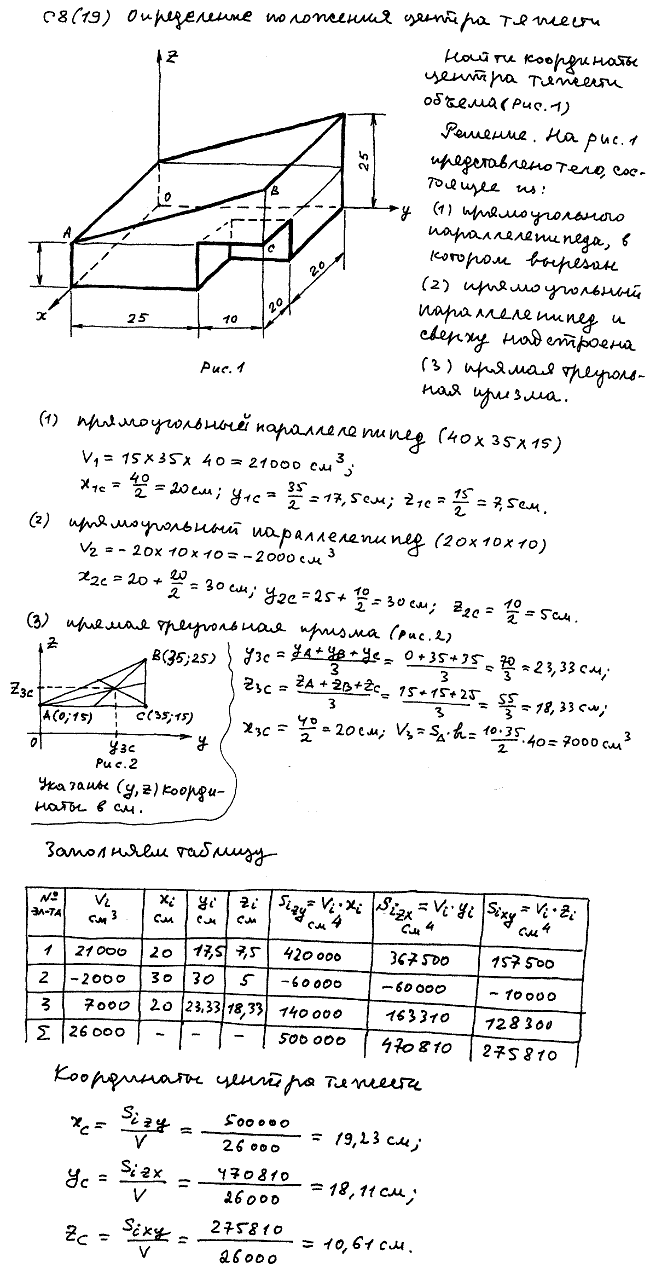 С8(19) Определение положения центра тяжести
Найти координаты
центра тяжести
объема (Рис.1)
Решение. На рис.1
представлено тело, сос-
тоящее из:
(1) прямоугольного
параллелепипеда, в
котором вырезан
(2) прямоугольный
параллелепипед и
сверху надстроена
(3) прямая треуголь-
ная призма.
z
O
y
x
A
B
C
25
25
10
20
20
Рис.1
(1) прямоугольный параллелепипед (40×35×15)
V1 = 15×35×40 = 21000 см³;
x1c = 40/2 = 20 см; y1c = 35/2 = 17,5 см; z1c = 15/2 = 7,5 см.
(2) прямоугольный параллелепипед (20×10×10)
V2 = -20×10×10 = -2000 см³
x2c = 20 + 20/2 = 30 см; y2c = 25 + 10/2 = 30 см; z2c = 10/2 = 5 см.
(3) прямая треугольная призма (рис.2)
z
B(35;25)
z3c
A(0;15)
C(35;15)
O
y3c
y
Рис.2
Указаны (y,z) коорди-
наты в см.
y3c = (yA + yB + yC)/3 = (0+35+35)/3 = 70/3 = 23,33 см;
z3c = (zA + zB + zC)/3 = (15+15+25)/3 = 55/3 = 18,33 см;
x3c = 40/2 = 20 см; V3 = SΔ·h = 10·35/2·40 = 7000 см³
Заполняем таблицу
№ эл-та Vi см³ xi см yi см zi см Sizy = Vi·xi см⁴ Sizx = Vi·yi см⁴ Sixy = Vi·zi см⁴
1 21000 20 17,5 7,5 420000 367500 157500
2 -2000 30 30 5 -60000 -60000 -10000
3 7000 20 23,33 18,33 140000 163310 128300
Σ 26000 - - - 500000 470810 275810
Координаты центра тяжести
xc = Sizy/V = 500000/26000 = 19,23 см;
yc = Sizx/V = 470810/26000 = 18,11 см;
zc = Sixy/V = 275810/26000 = 10,61 см.